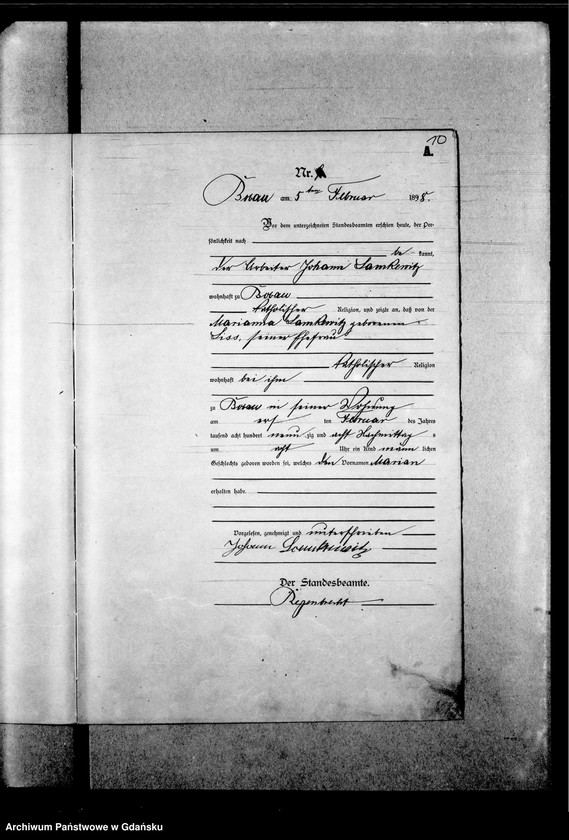 10
A.
Nr.
Bosau am 5ten Februar 1898.
Vor dem unterzeichneten Standesbeamten erschien heute, der Per-
sönlichkeit nach
be kannt,
der Arbeiter Johann Lamkewitz
wohnhaft zu Bosau
katholischer Religion, und zeigte an, daß von der
Marianna Lamkewitz geborenen
Liss, seiner Ehefrau
katholischer Religion
wohnhaft bei ihm
zu Bosau in seiner Wohnung
am ersten Februar des Jahres
tausend acht hundert neun zig und acht Nachmittags
um acht Uhr ein Kind männlichen
Geschlechts geboren worden sei, welches den Vornamen Marian
erhalten habe.
Vorgelesen, genehmigt und unterschrieben
Johann Lamkewitz
Der Standesbeamte.
Archiwum Państwowe w Gdańsku